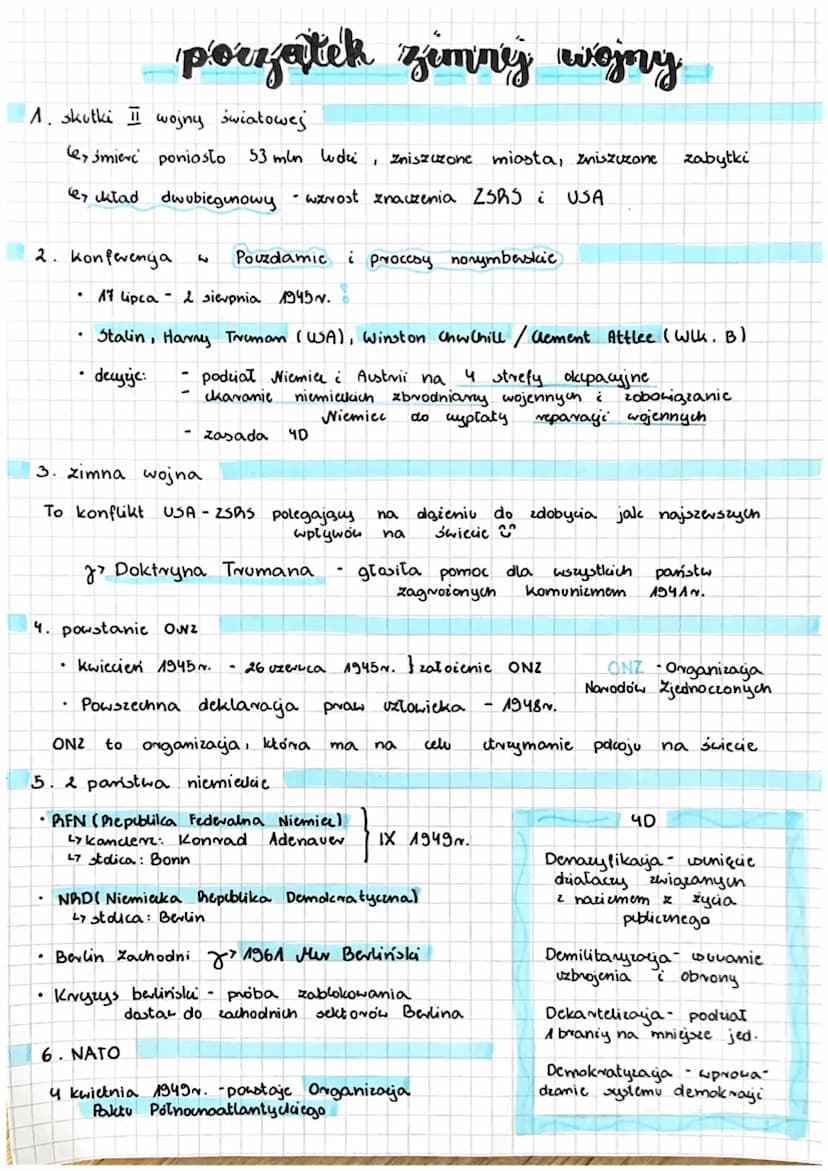 początek zimnej wojny
1. skutki II wojny światowej
↳ śmierć poniosło 53 mln ludzi, zniszczone miasta, zniszczone zabytki
↳ układ dwubiegunowy - wzrost znaczenia ZSRS i USA
2. konferencja w Poczdamie i procesy norymberskie
• 17 lipca - 2 sierpnia 1945r. !
• Stalin, Harry Truman (USA), Winston Churchill / Clement Attlee (Wlk. B)
• decyzje: - podział Niemiec i Austrii na 4 strefy okupacyjne
- ukaranie niemieckich zbrodniarzy wojennych i zobowiązanie
Niemiec do wypłaty reparacji wojennych
- zasada 4D
3. zimna wojna
To konflikt USA - ZSRS polegający na dążeniu do zdobycia jak najszerszych
wpływów na świecie
↳ Doktryna Trumana - głosiła pomoc dla wszystkich państw
zagrożonych komunizmem 1941r.
4. powstanie ONZ
• kwiecień 1945r. - 26 czerwca 1945r. } założenie ONZ
ONZ - Organizacja
Narodów Zjednoczonych
• Powszechna deklaracja praw człowieka - 1948r.
ONZ to organizacja, która ma na celu utrzymanie pokoju na świecie
5. 2 państwa niemieckie
• RFN (Republika Federalna Niemiec)
↳ kanclerz: Konrad Adenauer } IX 1949r.
↳ stolica: Bonn
• NRD (Niemiecka Republika Demokratyczna)
↳ stolica: Berlin
• Berlin Zachodni → 1961 Mur Berliński
• Kryzys berliński - próba zablokowania
dostaw do zachodnich sektorów Berlina
6. NATO
4 kwietnia 1949r. - powstaje Organizacja
Paktu Północnoatlantyckiego
4D
Denazyfikacja - usunięcie
działaczy związanych
z nazizmem z życia
publicznego
Demilitaryzacja - usuwanie
uzbrojenia i obrony
Dekartelizacja - podział
1 branży na mniejsze jed.
Demokratyzacja - wprowa-
dzanie systemu demokracji